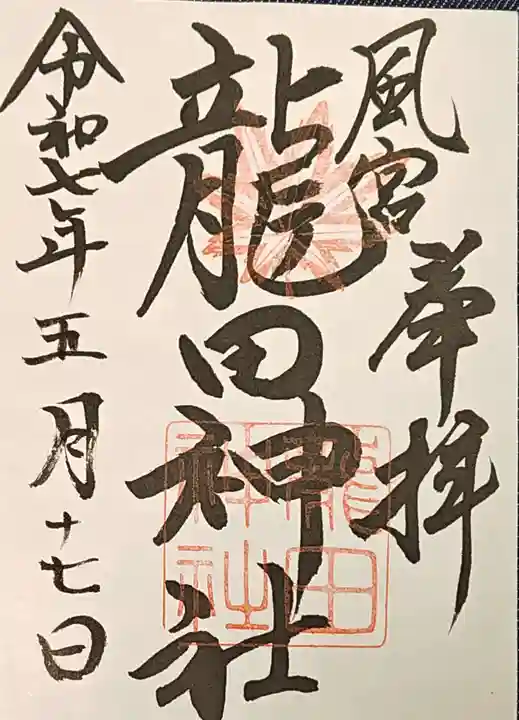 風宮
奉拝
龍田神社
龍田
神社
令和七年五月十七日